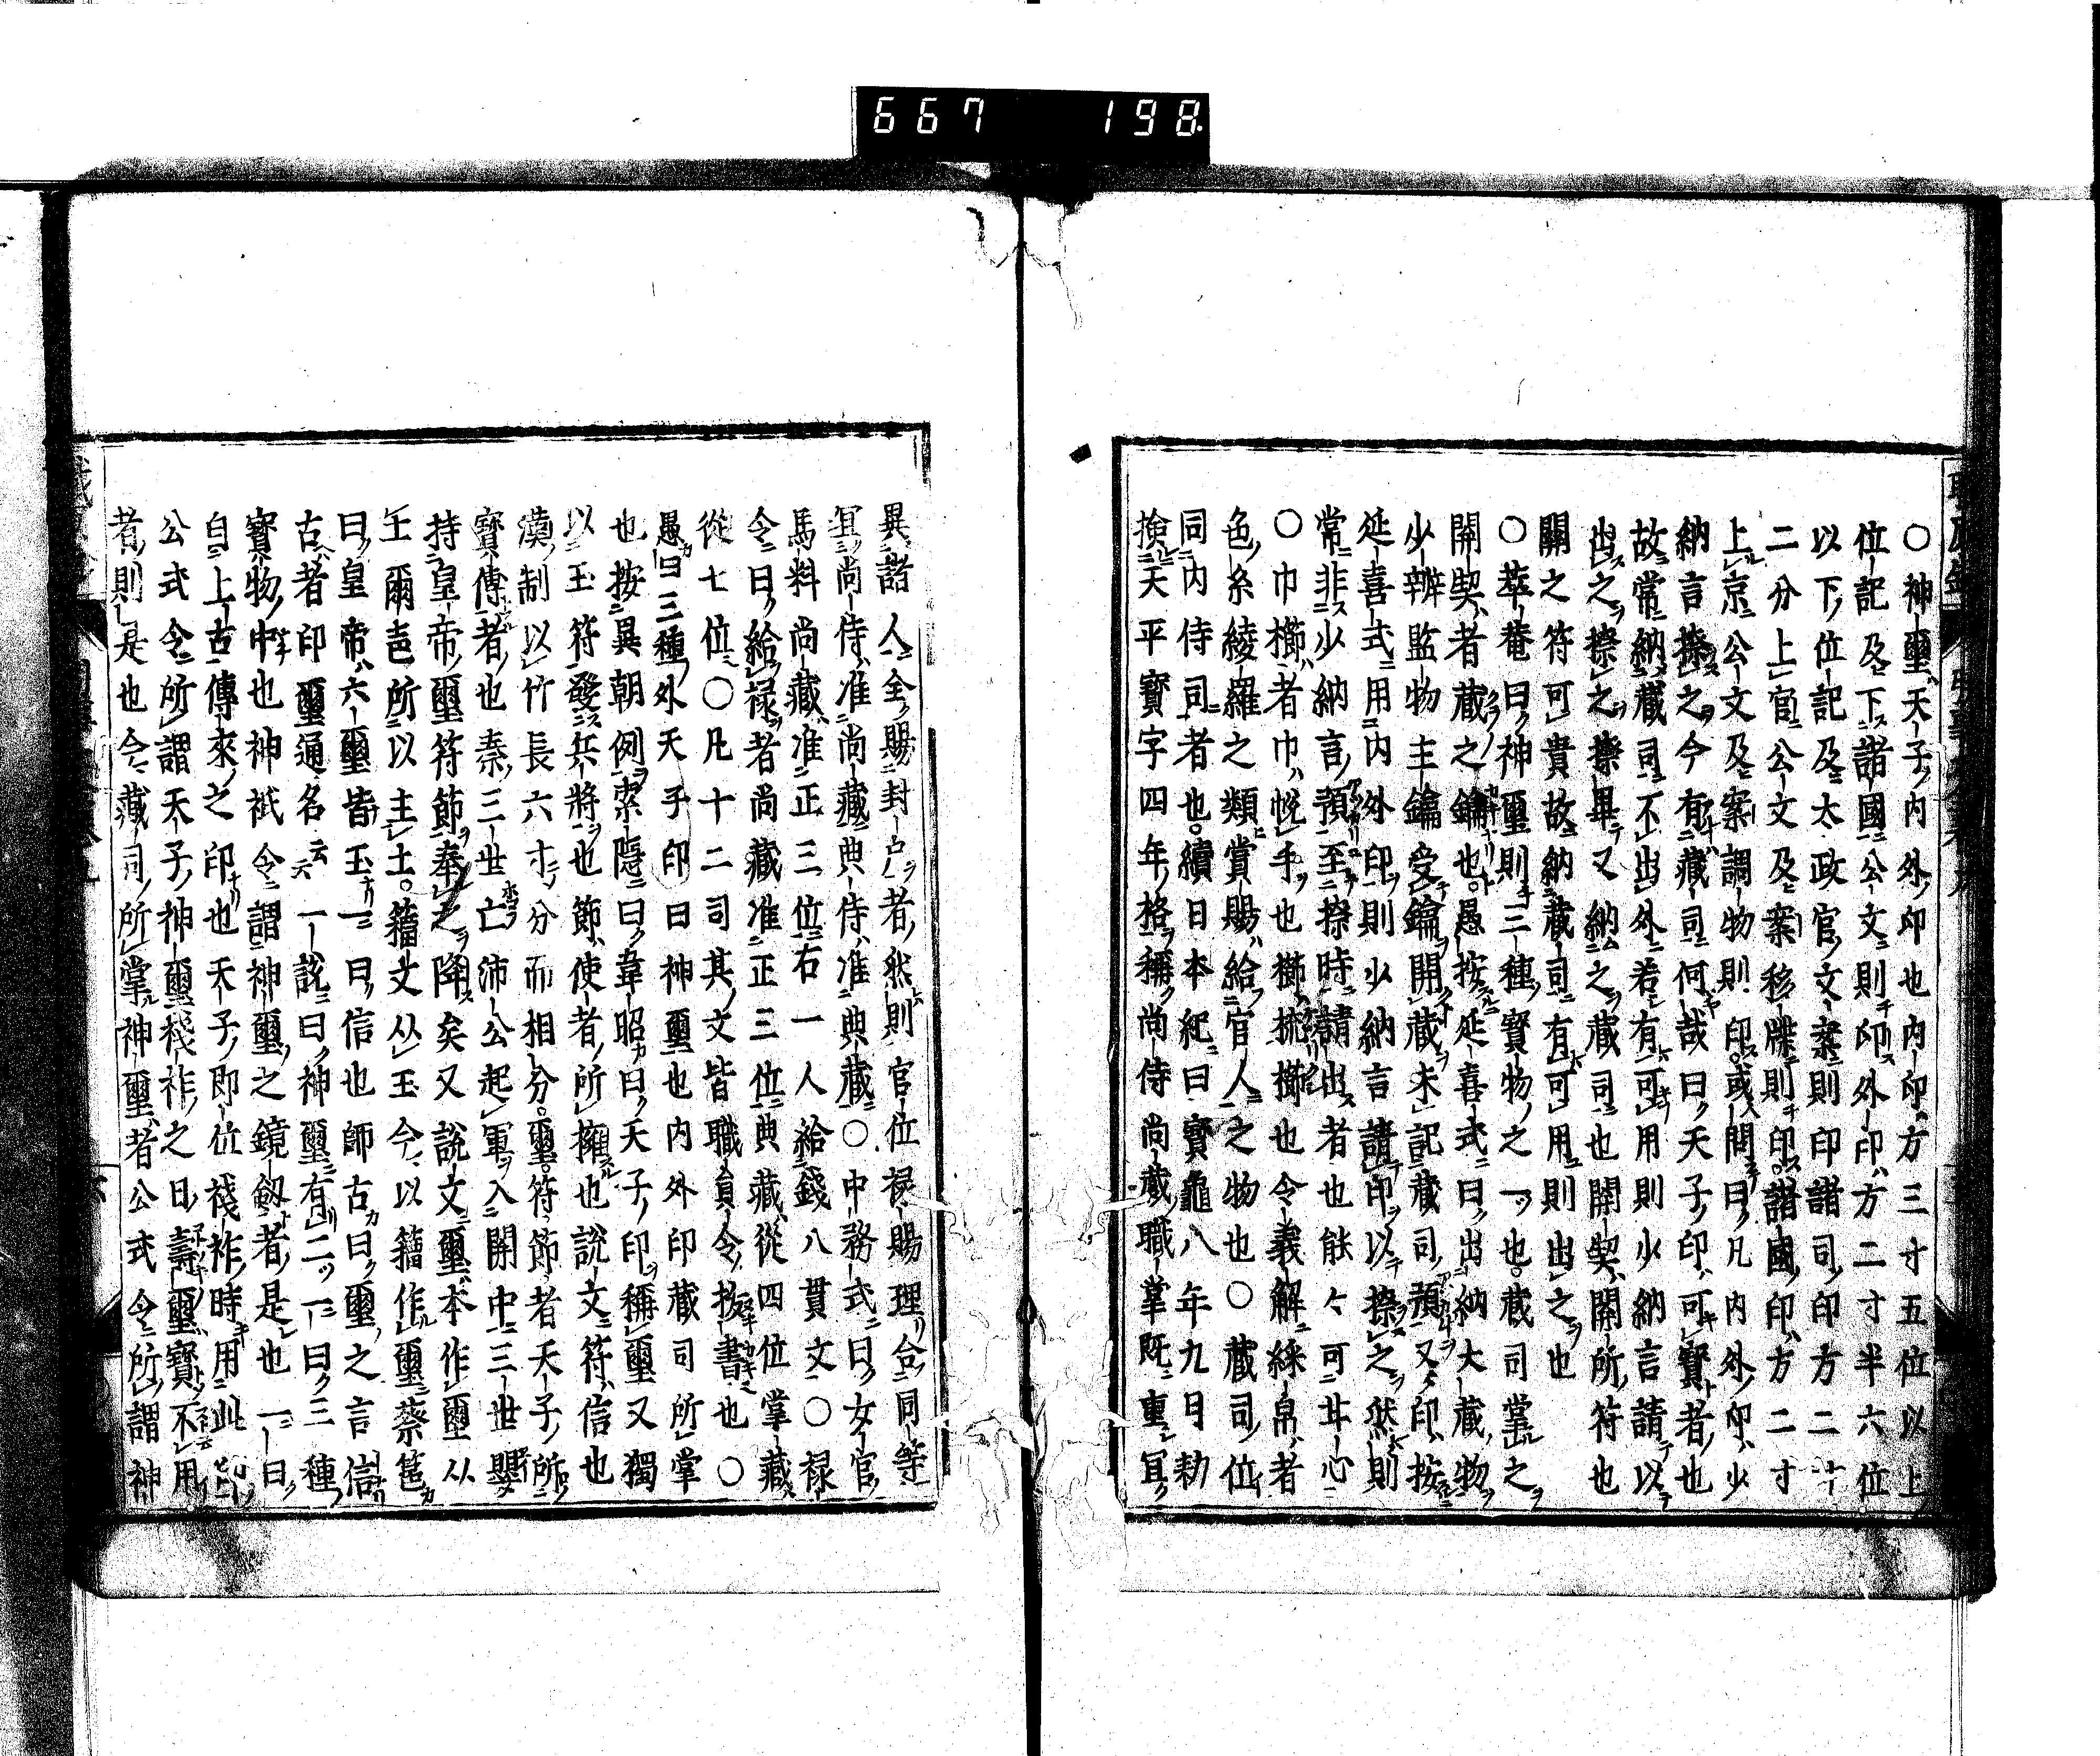 667 198
○神璽天子内外印也内印方三寸五位以上
位記及下諸國公文則印外印方二寸半六位
以下位記及太政官文案則印諸司印方二寸
二分上官公文及案移牒則印諸國印方二寸
上京公文及案調物則印或問曰凡内外印少
納言捺之今有藏司何哉曰天子印可寶者也
故常納藏司不出外若有可用則少納言請以
出之捺之捺畢又納之藏司也關契關所符也
關之符可貴故納藏司有可用則出之也
○莘菴曰神璽則三種寶物之一也藏司掌之
關契者藏之鑰也愚按延喜式曰出納大藏物
少辨監物主鑰受鑰開藏未記藏司預又印按
延喜式用内外印則少納言請印以捺之然則
常非少納言預至捺時請出者也能々可甘心
○巾櫛者巾帨手也櫛梳櫛也令義解綵帛者
色糸綾羅之類賞賜給官人之物也○藏司位
同内侍司者也續日本紀曰寶龜八年九日勅
撿天平寶字四年格稱尚侍尚藏職掌既重宜
異諸人全賜封戸者然則官位禄賜理合同等
宜尚侍准尚藏典侍准典藏○中務式曰女官
馬料尚藏准正三位右一人給錢八貫文○禄
令曰給禄者尚藏准正三位典藏從四位掌藏
從七位○凡十二司其文皆職員令拔書也○
愚曰三種外天子印曰神璽也内外印藏司所掌
也按異朝例索隱曰韋昭曰天子印稱璽又獨
以玉符發兵將也節使者所擁也説文符信也
漢制以竹長六寸分而相分璽符節者天子所
寶傳者也秦三世亡沛公起軍入關中三世嬰
持皇帝璽符節奉之降矣又説文璽本作壐从
王爾邑所以主土籒文从玉今以籒作璽蔡邕
曰皇帝六璽皆玉一曰信也師古曰璽之言信
古者印璽通名云云一説曰神璽有二一曰三種
寶物中也神祇令謂神璽之鏡劒者是也一曰
白上古傳來之印也天子即位踐祚時用此印
公式令所謂天子神璽踐祚之日壽璽寶不用
者則是也今藏司所掌神璽者公式令所謂神